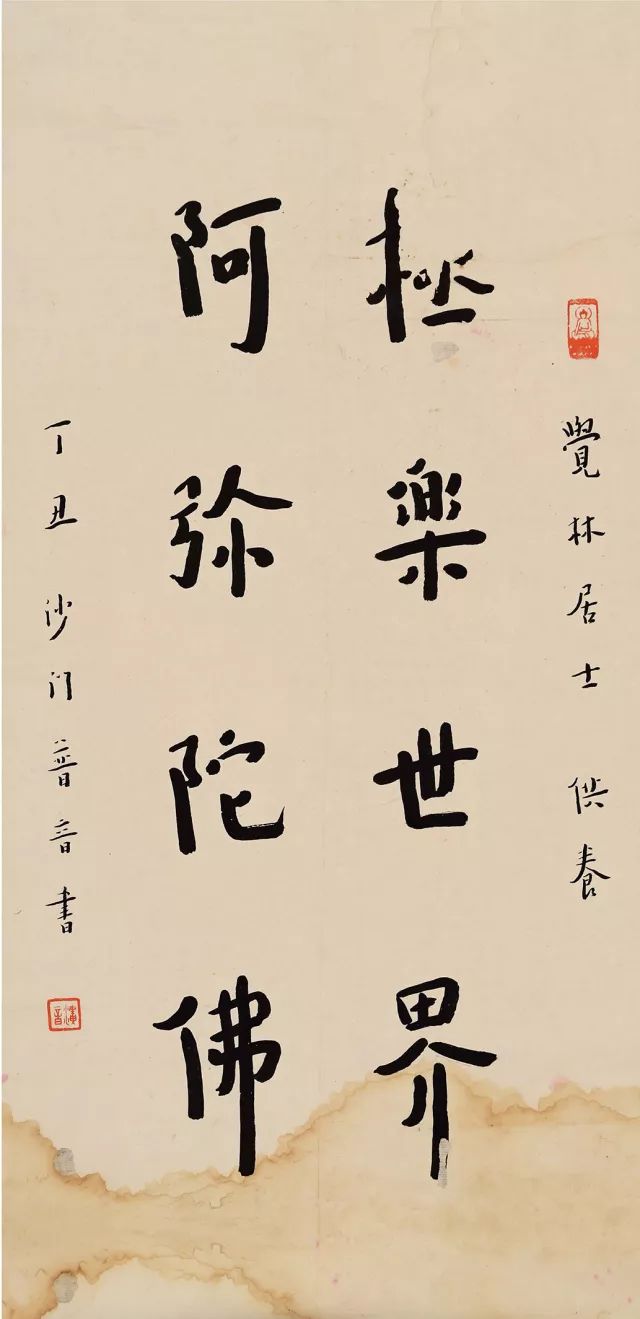 覺林居士 供養
極樂世界
阿弥陀佛
丁丑沙門普音書